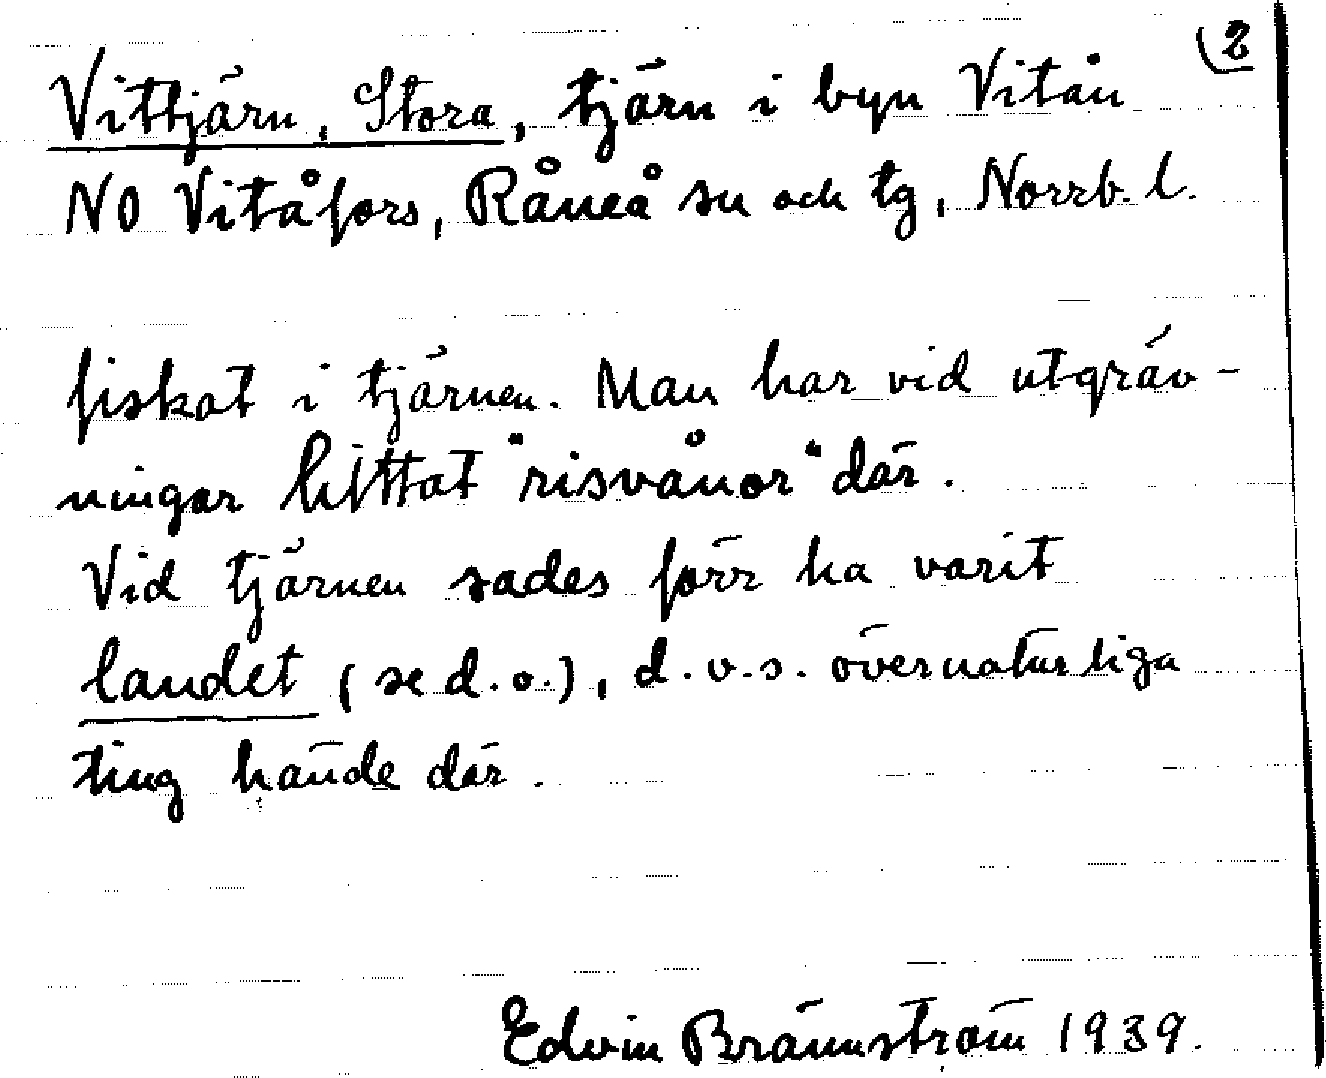 2
Vittjärn, Stora, tjärn i byn Vitån
NO Vitåfors, Råneå sn och tg, Norrb. l.
fiskat i tjärnen. Man har vid utgräv-
ningar hittat "risvånor" där.
Vid tjärnen sades förr ha varit
landet (se d. o.), d. v. s. övernaturliga
ting hände där.
Edvin Brännström 1939.